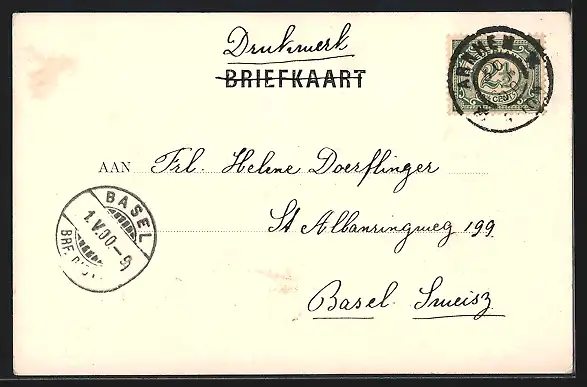 Drukwerk
BRIEFKAART
ARNHEM
2½
CENT
AAN Frl. Helene Doerflinger
St Albanringweg 199
Basel Sweisz
BASEL
1.V.00.-9